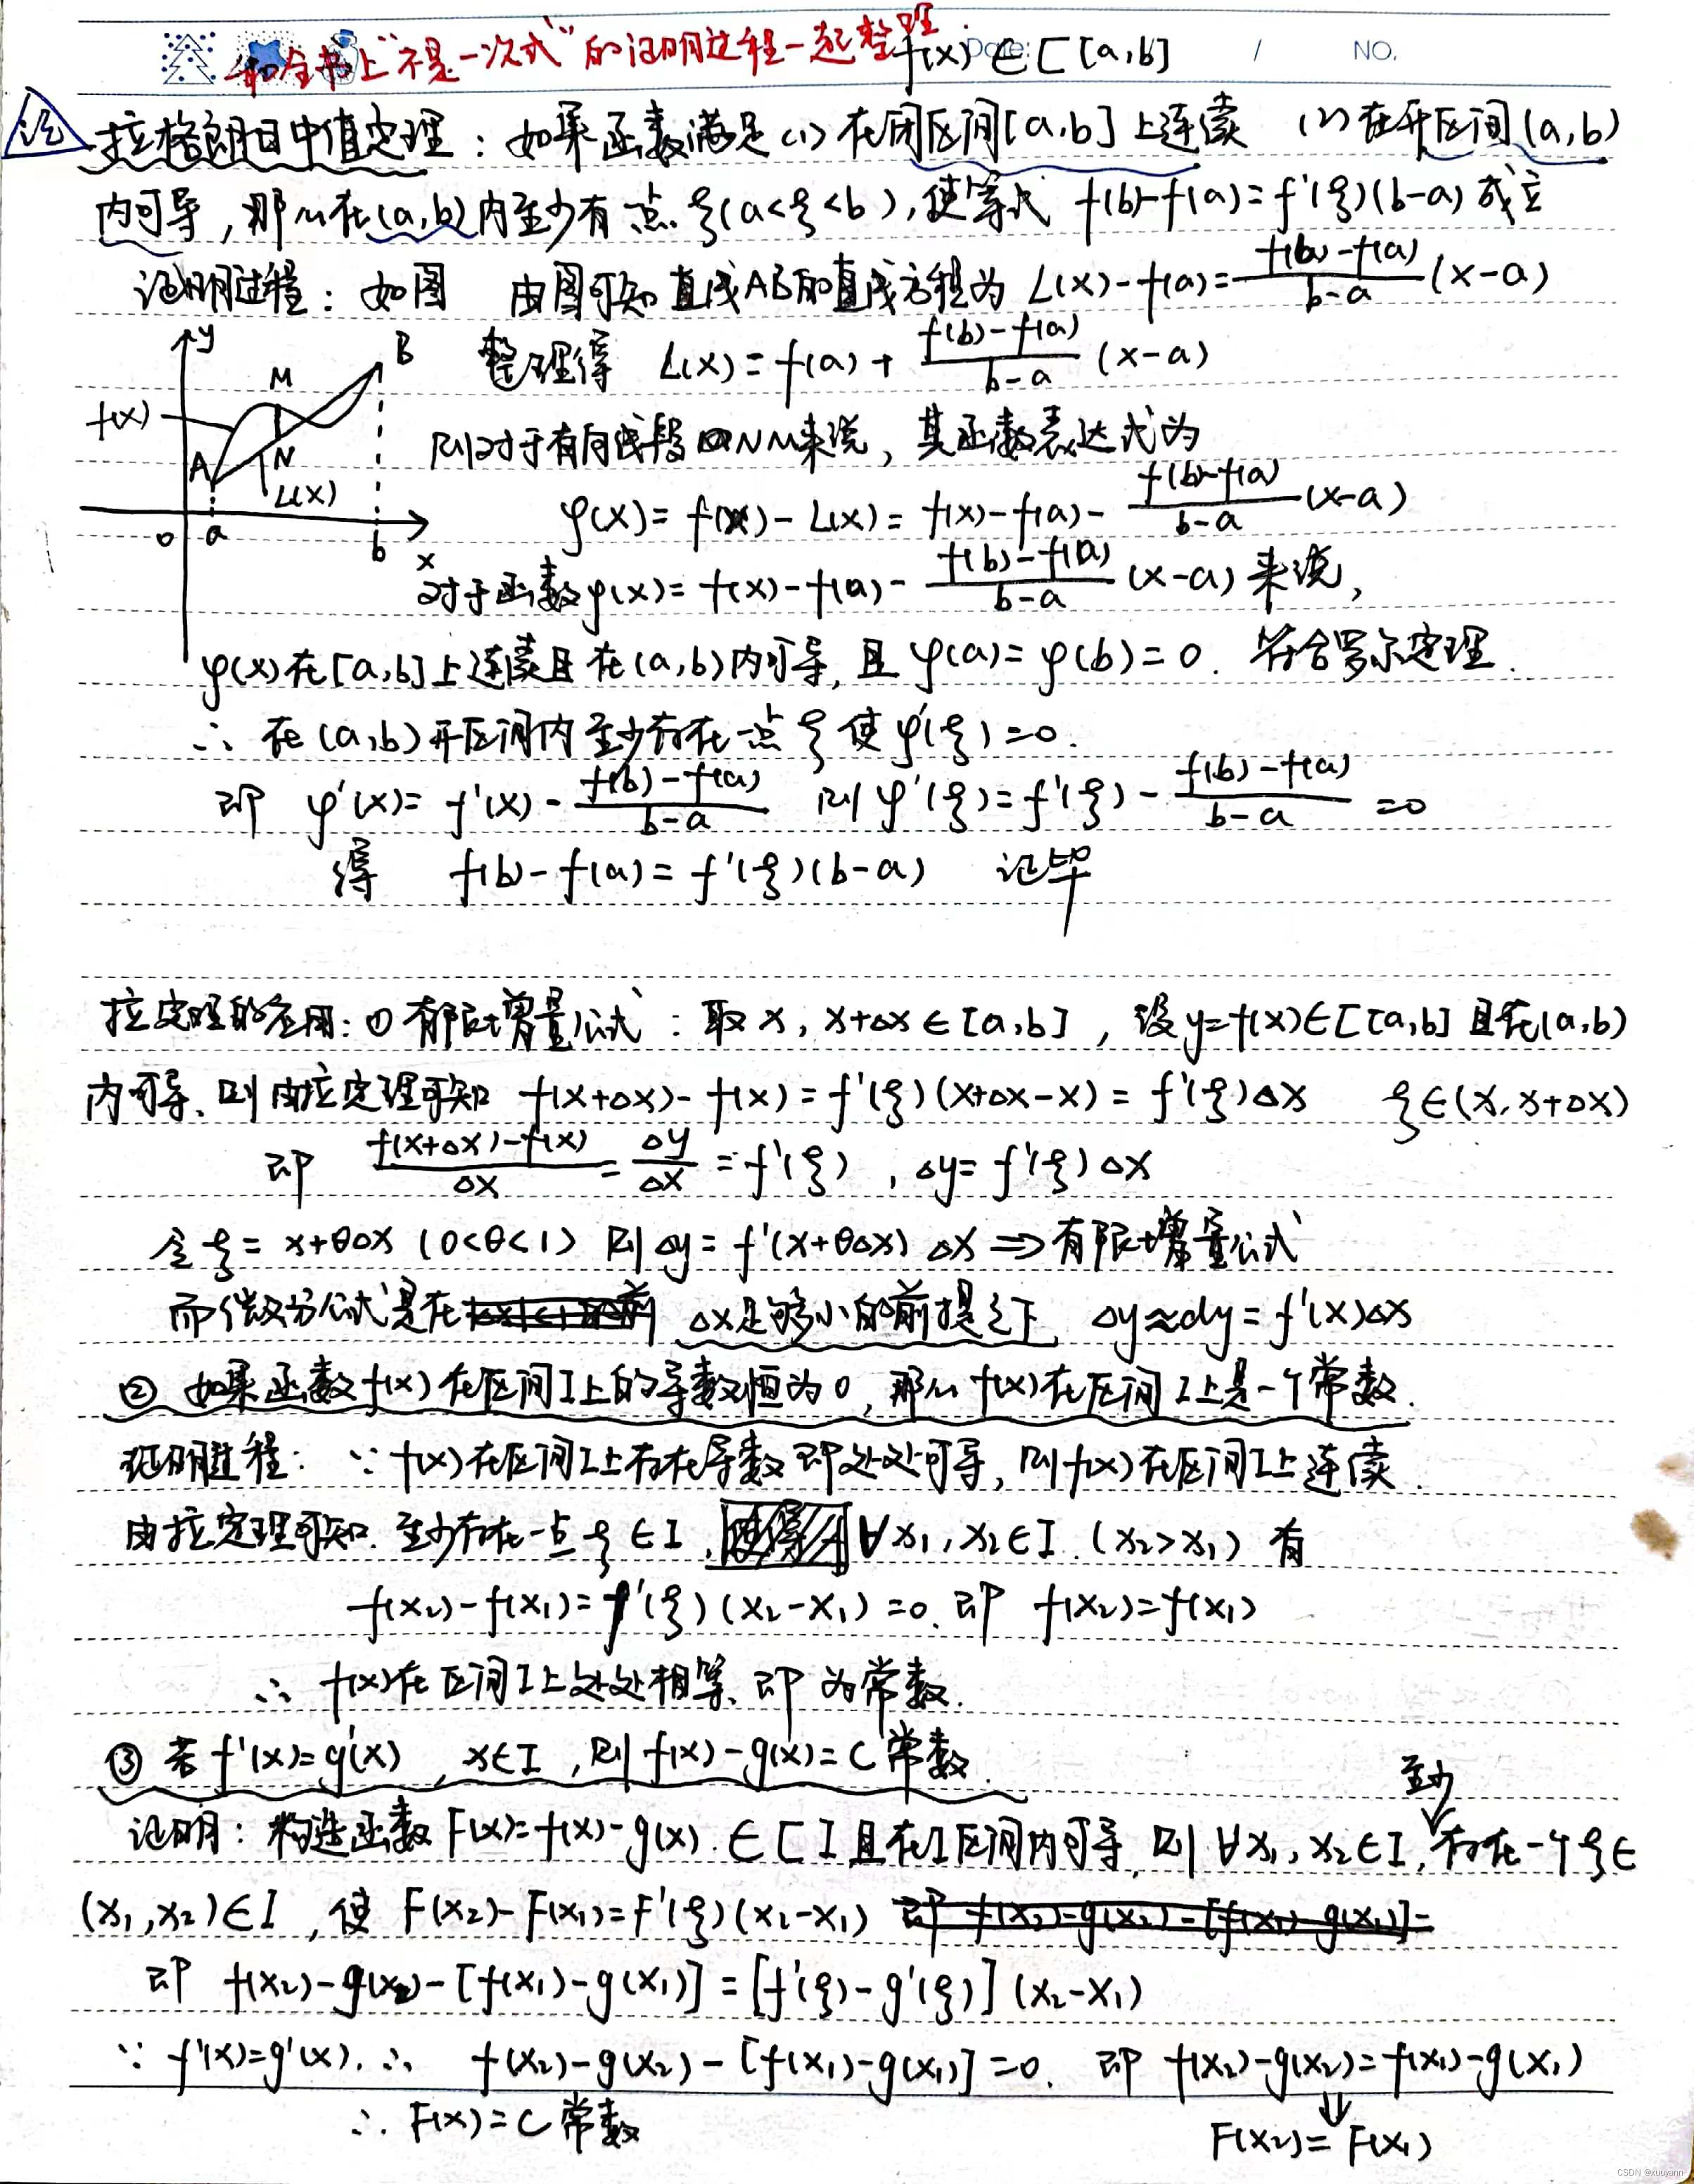 和全书上"不是一次式"的证明过程一起整理
Date: / NO.
f(x)∈C[a,b]
证 拉格朗日中值定理：如果函数满足(1)在闭区间[a,b]上连续 (2)在开区间(a,b)
内可导，那么在(a,b)内至少有一点ξ(a<ξ<b)，使等式 f(b)-f(a)=f'(ξ)(b-a)成立
证明过程：如图 由图可知直线AB的直线方程为 L(x)-f(a)=\frac{f(b)-f(a)}{b-a}(x-a)
整理得 L(x)=f(a)+\frac{f(b)-f(a)}{b-a}(x-a)
y B M f(x) A N L(x) 0 a b x
则对于有向线段NM来说，其函数表达式为
φ(x)=f(x)-L(x)=f(x)-f(a)-\frac{f(b)-f(a)}{b-a}(x-a)
对于函数φ(x)=f(x)-f(a)-\frac{f(b)-f(a)}{b-a}(x-a)来说，
φ(x)在[a,b]上连续且在(a,b)内可导，且φ(a)=φ(b)=0. 符合罗尔定理.
∴ 在(a,b)开区间内至少存在一点ξ使φ'(ξ)=0.
即 φ'(x)=f'(x)-\frac{f(b)-f(a)}{b-a} 则φ'(ξ)=f'(ξ)-\frac{f(b)-f(a)}{b-a}=0
得 f(b)-f(a)=f'(ξ)(b-a) 证毕
拉定理的应用：① 有限增量公式：取x, x+Δx∈[a,b]，设y=f(x)∈C[a,b]且在(a,b)
内可导、则由拉定理可知 f(x+Δx)-f(x)=f'(ξ)(x+Δx-x)=f'(ξ)Δx ξ∈(x, x+Δx)
即 \frac{f(x+Δx)-f(x)}{Δx}=\frac{Δy}{Δx}=f'(ξ)，Δy=f'(ξ)Δx
令ξ=x+θΔx (0<θ<1) 则Δy=f'(x+θΔx)Δx ⇒有限增量公式
而微分公式是在Δx足够小的前提之下 Δy≈dy=f'(x)Δx
② 如果函数f(x)在区间I上的导数恒为0，那么f(x)在区间I上是一个常数.
证明过程：∵f(x)在区间I上存在导数即处处可导，则f(x)在区间I上连续.
由拉定理可知. 至少存在一点ξ∈I, ∀x₁, x₂∈I. (x₂>x₁) 有
f(x₂)-f(x₁)=f'(ξ)(x₂-x₁)=0. 即 f(x₂)=f(x₁)
∴ f(x)在区间I上处处相等、即为常数.
③ 若f'(x)=g'(x)，x∈I，则f(x)-g(x)=C常数.
至少
证明：构造函数F(x)=f(x)-g(x).∈C I且在I区间内可导，则∀x₁, x₂∈I, 存在一个ξ∈
(x₁,x₂)∈I，使 F(x₂)-F(x₁)=F'(ξ)(x₂-x₁) 即f(x₂)-g(x₂)-[f(x₁)-g(x₁)]=
即 f(x₂)-g(x₂)-[f(x₁)-g(x₁)]=[f'(ξ)-g'(ξ)](x₂-x₁)
∵ f'(x)=g'(x). ∴ f(x₂)-g(x₂)-[f(x₁)-g(x₁)]=0. 即 f(x₂)-g(x₂)=f(x₁)-g(x₁)
⇓
∴ F(x)=C常数 F(x₂)=F(x₁)
CSDN @xuuyann